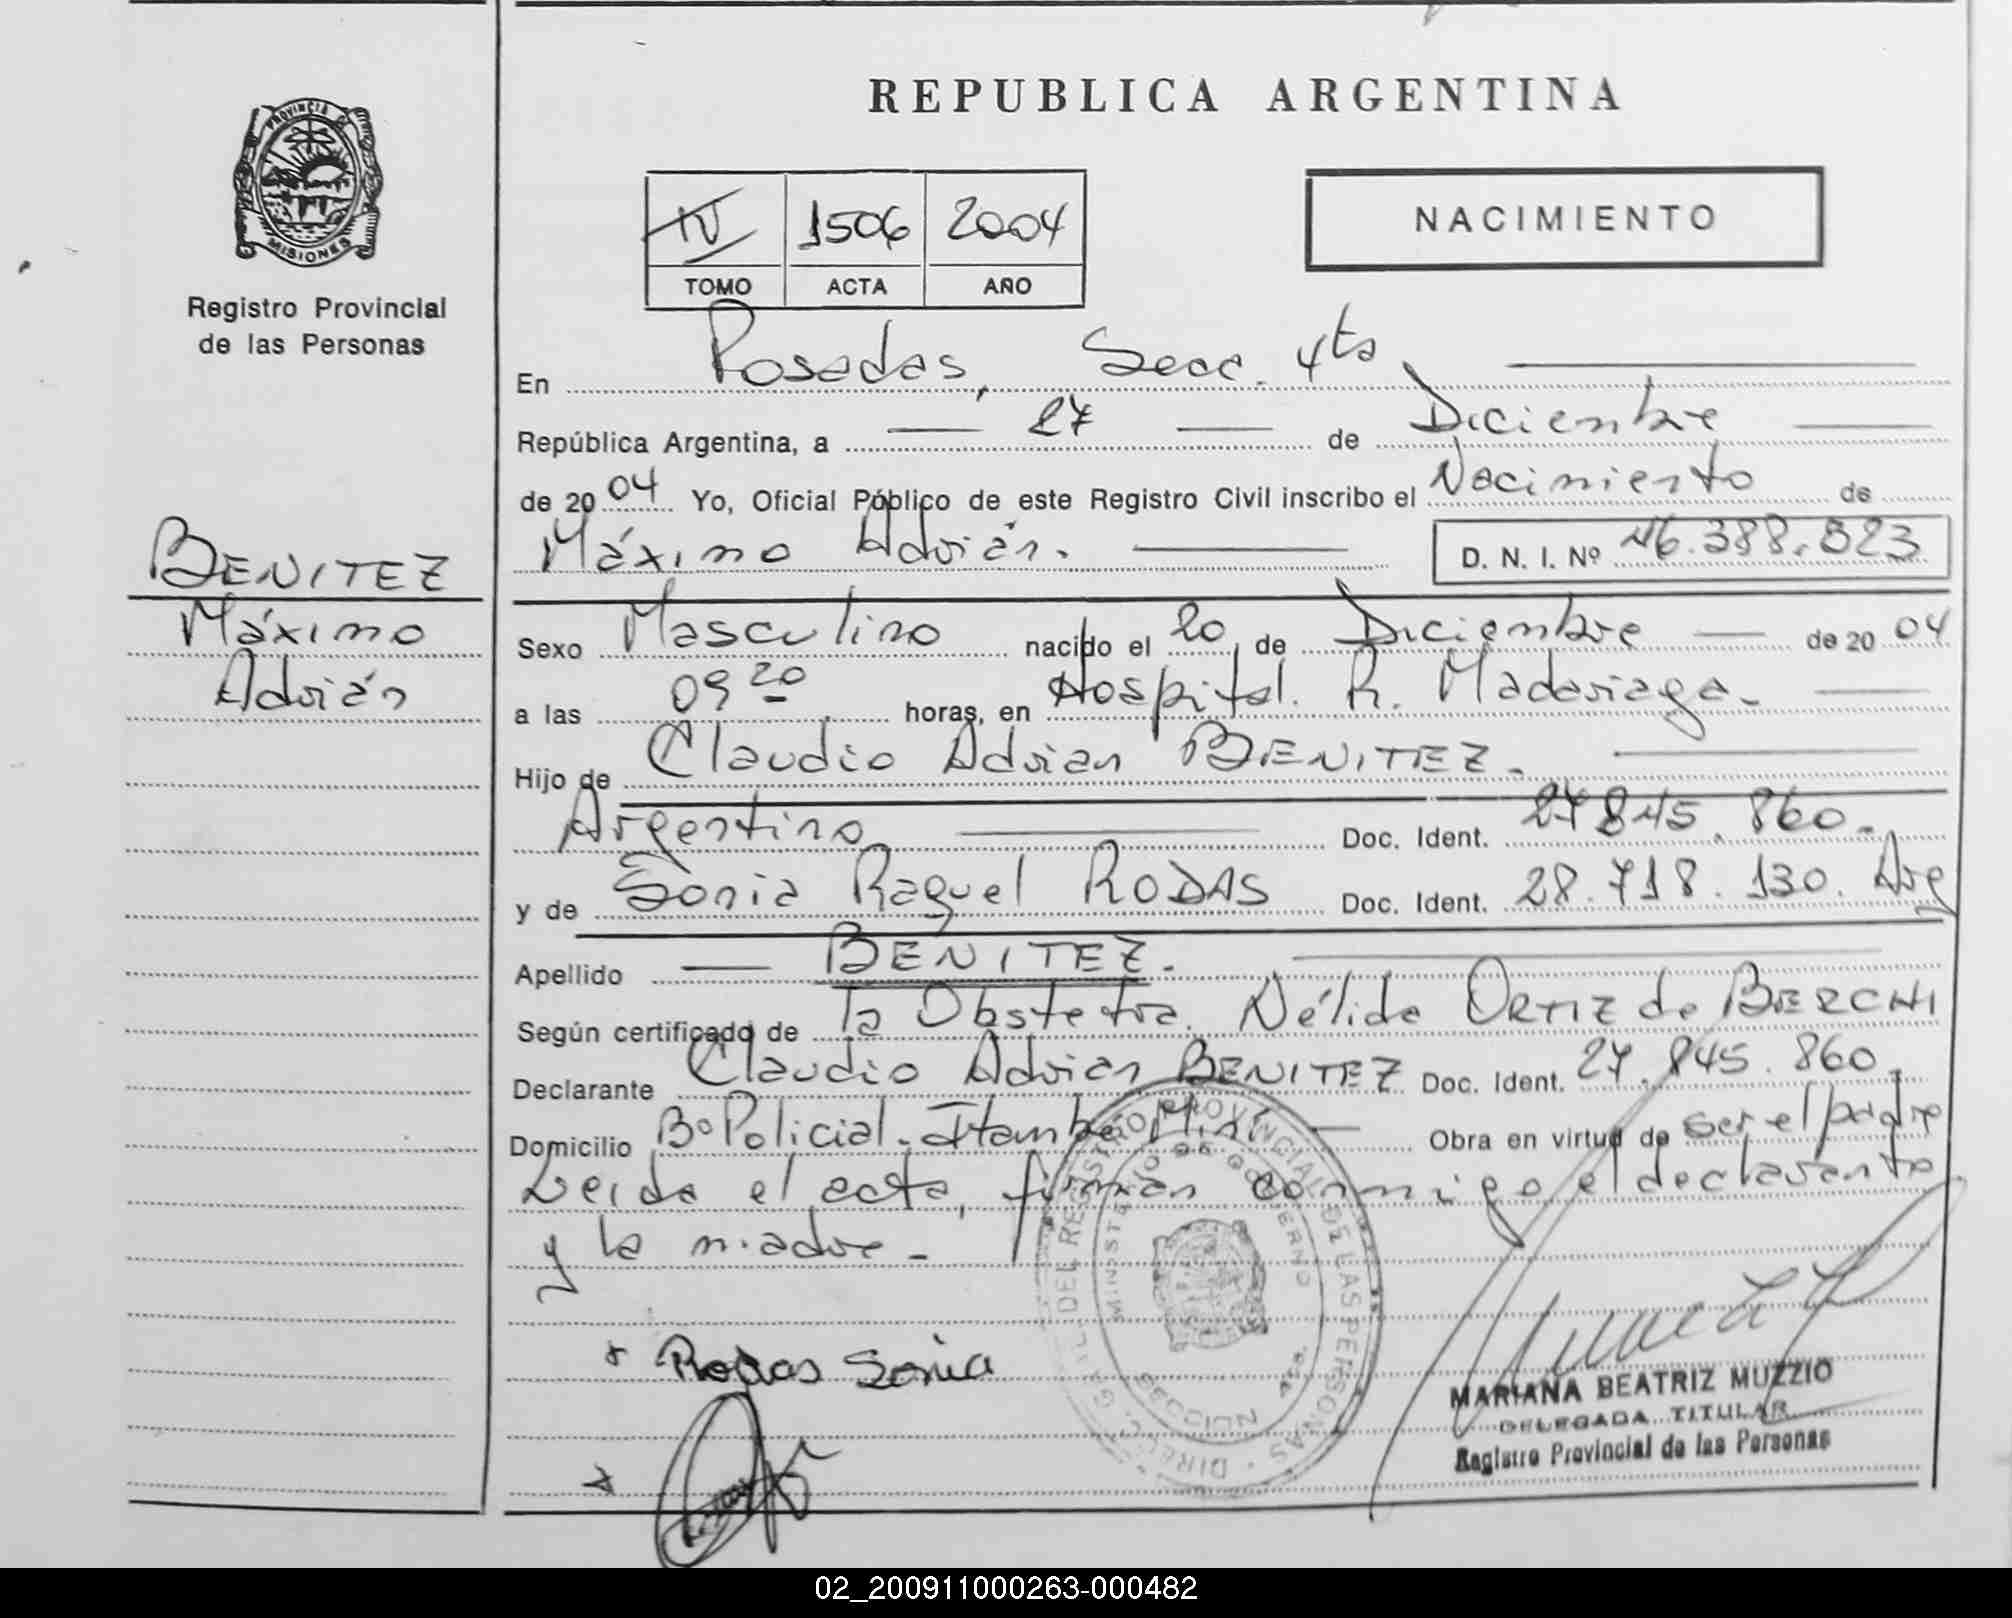 PROVINCIA DE
MISIONES
Registro Provincial
de las Personas
BENITEZ
Máximo
Adrián
REPUBLICA ARGENTINA
IV 1506 2004
TOMO ACTA AÑO
NACIMIENTO
En Posadas, Secc. 4ta
República Argentina, a 27 de Diciembre
de 2004 Yo, Oficial Público de este Registro Civil inscribo el Nacimiento de
Máximo Adrián. D. N. I. Nº 46.388.823
Sexo Masculino nacido el 20 de Diciembre de 2004
a las 09 20 horas, en Hospital R. Madariaga.
Hijo de Claudio Adrian BENITEZ.
Argentino Doc. Ident. 27.845.860.
y de Sonia Raquel RODAS Doc. Ident. 28.718.130. Arg
Apellido BENITEZ.
Según certificado de la Obstetra. Nélida ORTIZ de BERCHI
Declarante Claudio Adrian BENITEZ Doc. Ident. 27.845.860.
Domicilio Bº Policial. Itambe Mini Obra en virtud de ser el padre
Leida el acta, firman conmigo el declarante
y la madre.
Rodas Sonia
DIREC. GRAL. DEL REGISTRO PROVINCIAL DE LAS PERSONAS
MINISTERIO DE GOBIERNO
MARIANA BEATRIZ MUZZIO
DELEGADA TITULAR
Registro Provincial de las Personas
02_200911000263-000482